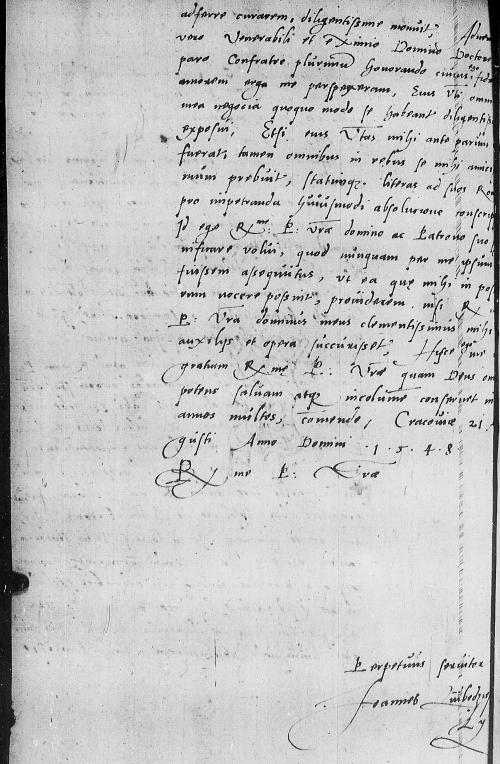 adferre curarem, diligentissime monuit,
vero Venerabili et eximio Domino Doctore
paro Confratre plurimum honorando cuius fide
amorem erga me perspexeram, Eius Vti omni
mea negocia quoquo modo se habeant diligentis
exposui, Etsi eius Vtas mihi ante parum
fuerat, tamen omnibus in rebus se mihi amici
mum prebuit, statimq. literas ad suos Rom
pro impetranda huiusmodi absolucione conscrip
Id ego Rme: P: vrae domino ac Patrono suo
nificare volui, quod nunquam per me ipsum
fuissem assequutus, vt ea que mihi in pos
rum nocere possint, providerem nisi R
P: Vra dominus meus clementissimus mihi
auxilijs et opera succurisset. Hisce me
gratum Rme P: Vrae quam Deus om
potens saluam atq. incolume conseruet in
annos multos, comendo, Cracoviae 21.
gusti Anno Domini .1.5.4.8
Rme P: Vrae
Perpetuus seruitor
Joannes